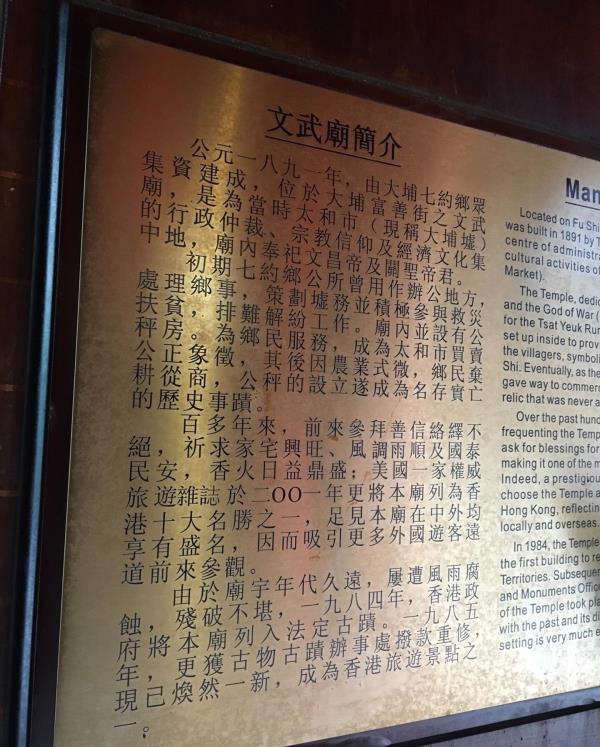 文武廟簡介
公元一八九一年，由大埔七約鄉眾
集資建成，位於大埔富善街之文武
廟，是為當時太和市（現稱大埔墟）
的行政仲裁、宗教信仰及經濟文化集
中地，廟內奉祀文昌帝及關聖帝君。
初期七約鄉公所曾用作辦公地方，
處理鄉事，策劃墟務並積極參與救災
扶貧，排難解紛工作。廟內並設有公
秤房。為鄉民服務，成為太和市買賣
公正象徵，其後因農業式微，鄉民棄
耕從商，公秤的設立遂成為名存實亡
的歷史事蹟。
百多年來，前來參拜善信絡繹不
絕，祈求家宅興旺、風調雨順及國泰
民安，香火日益鼎盛；美國一家權威
旅遊雜誌於二OO一年更將本廟列為香
港十大名勝之一，足見本廟在中外均
享有盛名，因而吸引更多外國遊客遠
道前來參觀。
由於廟宇年代久遠，屢遭風雨腐
蝕，殘破不堪，一九八四年，香港政
府將本廟列入法定古蹟。一九八五
年，更獲古物古蹟辦事處撥款重修，
現已煥然一新，成為香港旅遊景點之
一。
Man
Located on Fu Shi
was built in 1891 by T
centre of administra
cultural activities of
Market).
The Temple, dedic
and the God of War (
for the Tsat Yeuk Rur
set up inside to prov
the villagers, symboli
Shi. Eventually, as the
gave way to commerc
relic that was never a
Over the past hund
frequenting the Temp
ask for blessings for
making it one of the m
Indeed, a prestigiou
choose the Temple a
Hong Kong, reflectin
locally and overseas.
In 1984, the Temple
the first building to re
Territories. Subsequer
and Monuments Offic
of the Temple took pla
with the past and its di
setting is very much e